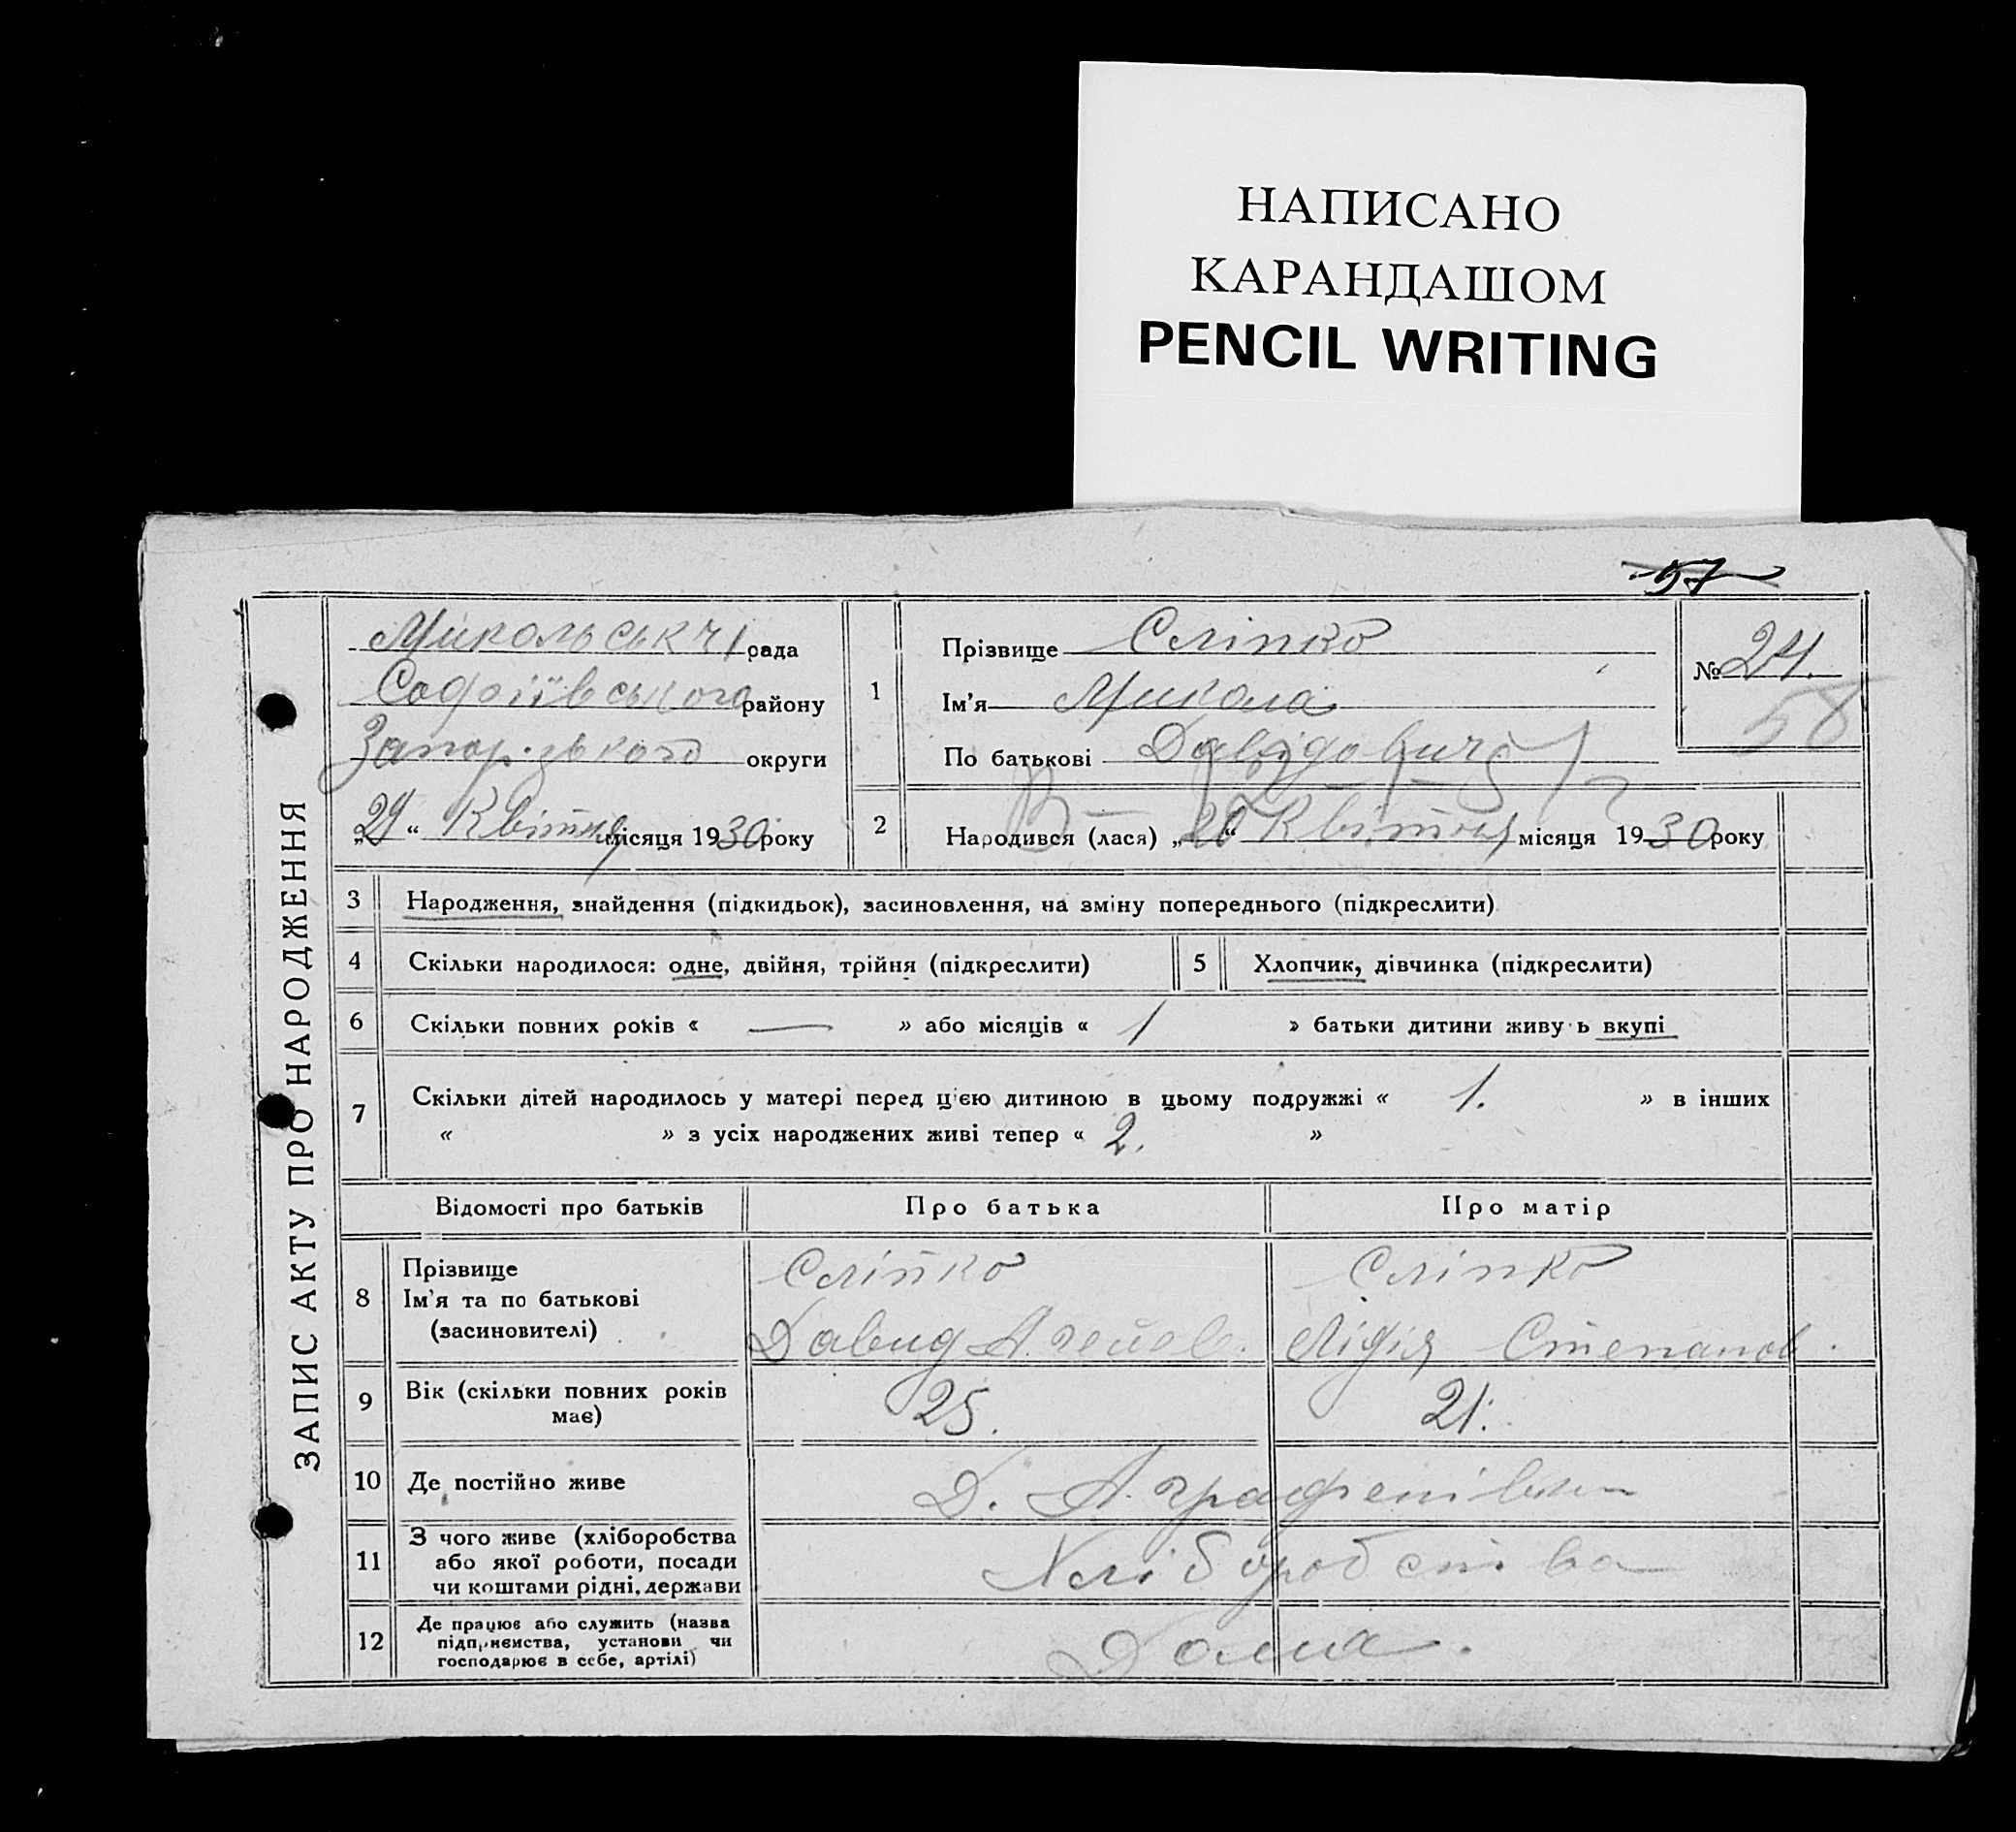 НАПИСАНО
КАРАНДАШОМ
PENCIL WRITING
57
ЗАПИС АКТУ ПРО НАРОДЖЕННЯ
рада
Софіївського району
округи
„29“ Квітня місяця 1930 року
1
Прізвище Сліпко
Ім'я Микола
По батькові
№ 24.
58
2
Народився (лася) „ “ Квітня місяця 1930 року
3 Народження, знайдення (підкидьок), засиновлення, на зміну попереднього (підкреслити)
4 Скільки народилося: одне, двійня, трійня (підкреслити) 5 Хлопчик, дівчинка (підкреслити)
6 Скільки повних років « — » або місяців « 1 » батьки дитини живу ь вкупі
7 Скільки дітей народилось у матері перед цією дитиною в цьому подружжі « 1. » в інших
« » з усіх народжених живі тепер « 2. »
Відомості про батьків Про батька Про матір
8 Прізвище Сліпко Сліпко
Ім'я та по батькові
(засиновителі) Давид Лідія Степанов.
9 Вік (скільки повних років 25. 21.
має)
10 Де постійно живе Д.
11 З чого живе (хліборобства
або якої роботи, посади Хліборобства
чи коштами рідні, держави
12 Де працює або служить (назва
підприємства, установи чи Дома.
господарює в себе, артілі)